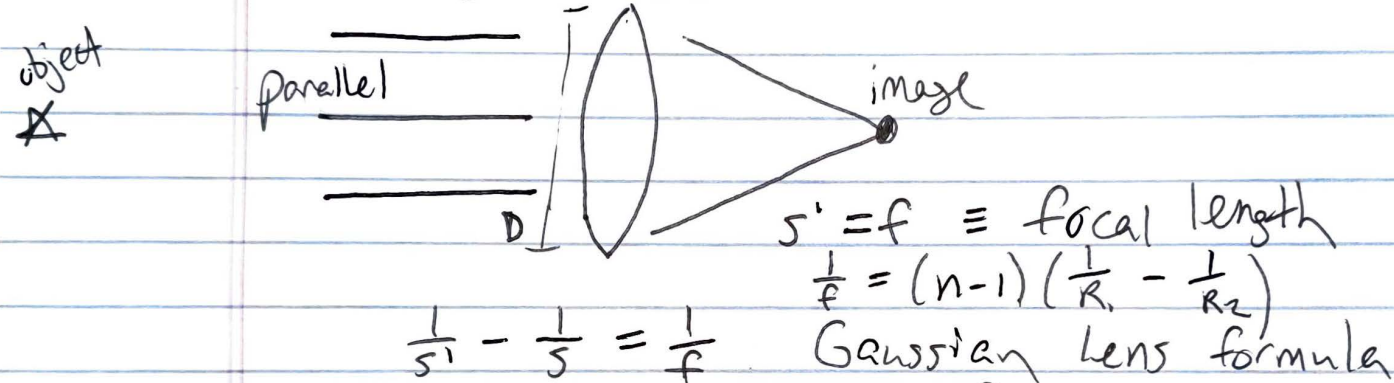 object
parallel
image
D
s' = f ≡ focal length
1/f = (n-1)(1/R₁ - 1/R₂)
1/s' - 1/s = 1/f Gaussian Lens formula